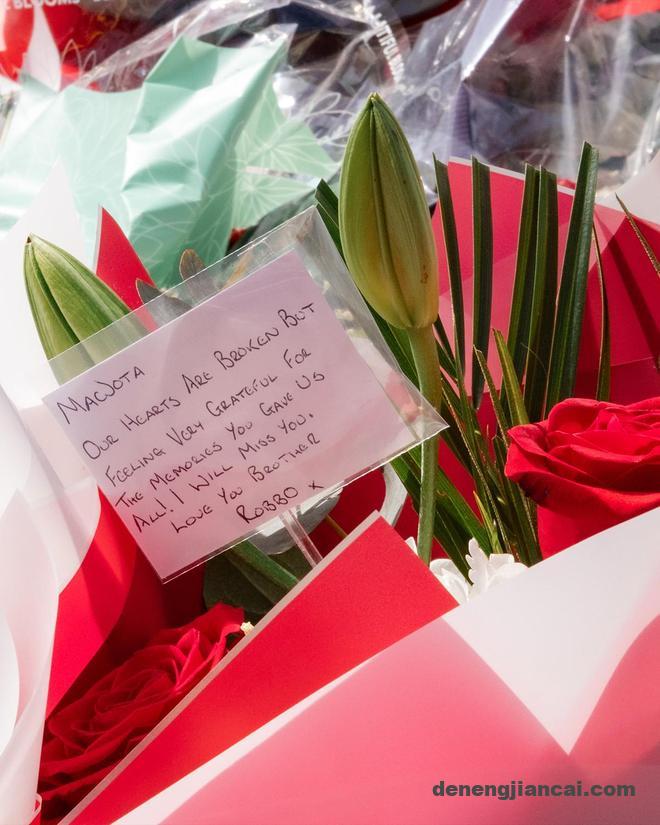 BLOOMS
MACJOTA
OUR HEARTS ARE BROKEN BUT
FEELING VERY GRATEFUL FOR
THE MEMORIES YOU GAVE US
ALL! I WILL MISS YOU.
LOVE YOU BROTHER
ROBBO X
denengjiancai.com